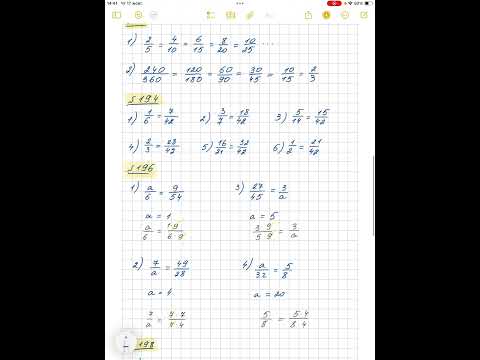 1) 2/5 = 4/10 = 6/15 = 8/20 = 10/25 ...
2) 240/360 = 120/180 = 60/90 = 30/45 = 10/15 = 2/3
5194
1) 1/6 = 7/42 2) 3/7 = 18/42 3) 5/14 = 15/42
4) 2/3 = 28/42 5) 16/21 = 32/42 6) 1/2 = 21/42
5196
1) a/6 = 9/54 3) 27/45 = 3/a
a = 1 a = 5
a/6 = 1·9/6·9 3·9/5·9 = 3/a
2) 7/a = 49/28 4) a/32 = 5/8
a = 4 a = 20
7/a = 7·7/7·4 5/8 = 5·4/8·4
5198